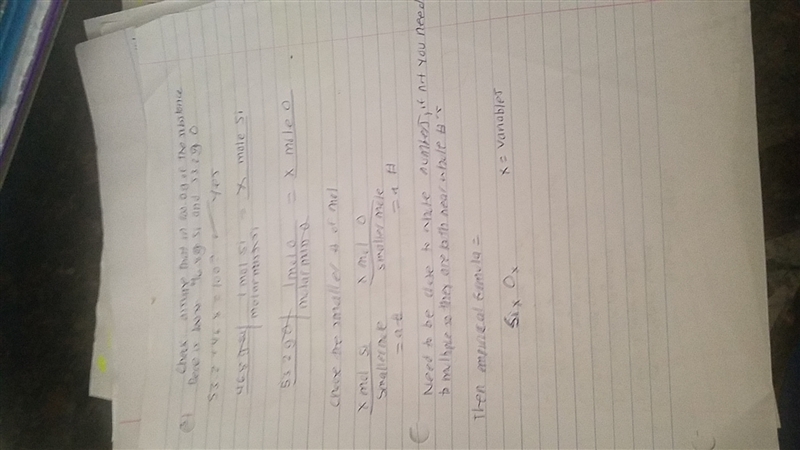 Check, assume that in 100.0g of the substance
there is have 46.8g Si and 53.2g O
53.2 + 46.8 = 100% ✓ Yes
46.8g Si | 1 mol Si = x mole Si
molar mass Si
53.2g O | 1 mol O = x mole O
molar mass O
Choose the smaller # of mol
x mol Si x mol O
smaller mole smaller mole
= a # = a #
Need to be close to whole numbers, if not you need
to multiple so they are both near whole #'s
Then empirical formula =
Six Ox x = variables